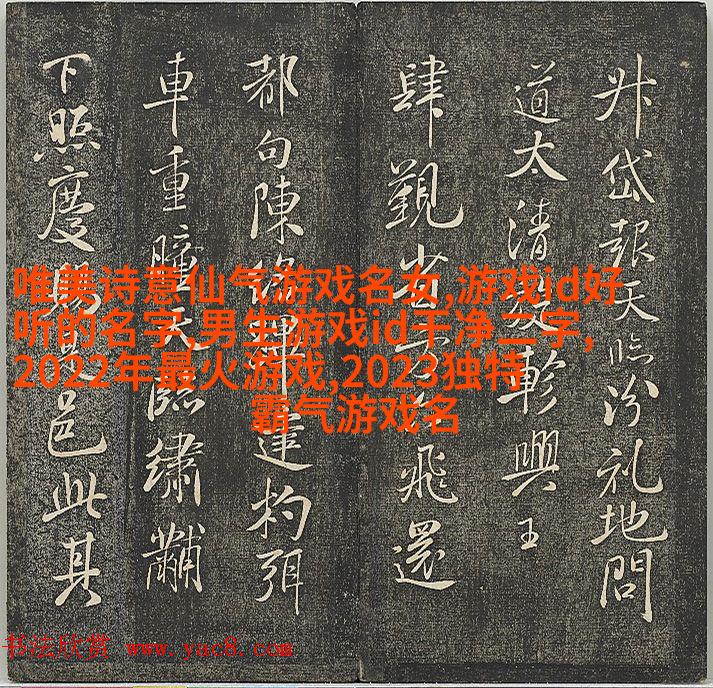 升岱報天臨汾礼地問
道太清軫興王
肆覲省方飛還
都句陳杓弭
車重瞳天臨繡黼
下照慶邑此其
唯美诗意仙气游戏名女,游戏id好
听的名字,男生游戏id干净二字,
2022年最火游戏,2023独特
霸气游戏名
书法欣赏 www.yac8.com